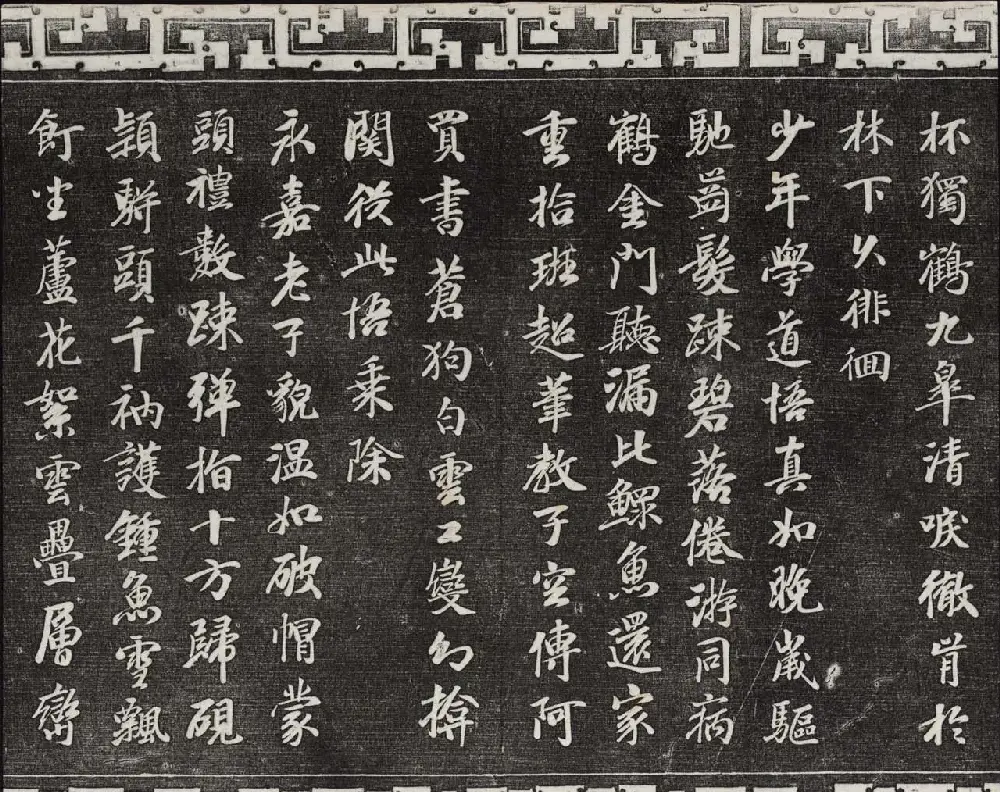 杯獨鶴九皐清唳徹肯於
林下久徘徊
少年學道悟真如晚歲驅
馳齒髮踈碧落倦游同病
鶴金門聽漏比鰥魚還家
重拾班超筆教子空傳阿
買書蒼狗白雲工變幻揜
關從此悟乗除
永嘉老子貌温如破帽蒙
頭禮數踈彈指十方歸硯
頴駢頭千衲護鍾魚雪飄
飣坐蘆花絮雲疊層巒